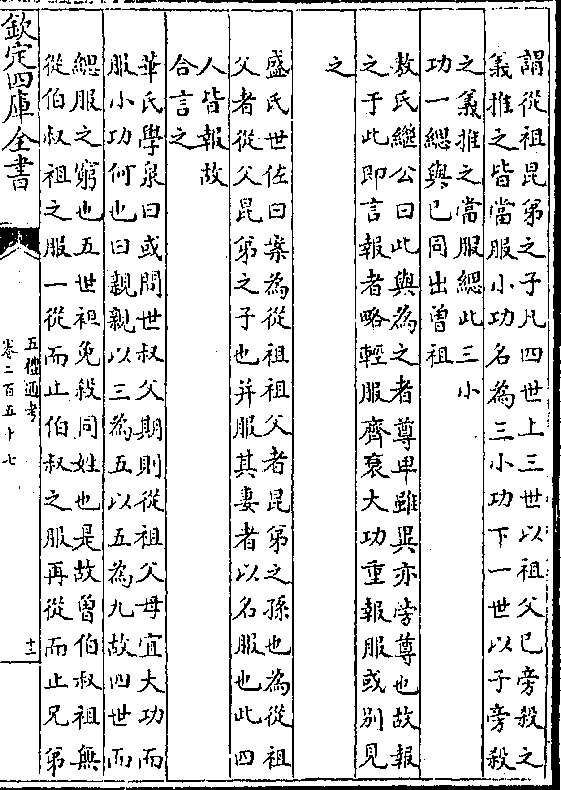 謂從祖昆弟之子凡四世上三世以祖父已旁殺之
義推之皆當服小功名為三小功下一世以子旁殺
之義推之當服緦此三小
功一緦與已同出曾祖
敖氏繼公曰此與為之者尊卑雖異亦旁尊也故報
之于此即言報者略輕服齊衰大功重報服或別見
之
盛氏世佐曰案為從祖祖父者昆弟之孫也為從祖
父者從父昆弟之子也并服其妻者以名服也此四
人皆報故
合言之
華氏學泉曰或問世叔父期則從祖父母宜大功而
服小功何也曰親親以三為五以五為九故四世而
緦服之窮也五世袒免殺同姓也是故曾伯叔祖無
從伯叔祖之服一從而止伯叔之服再從而止兄弟
欽定四庫全書
五禮通考
卷二百五十七
十三